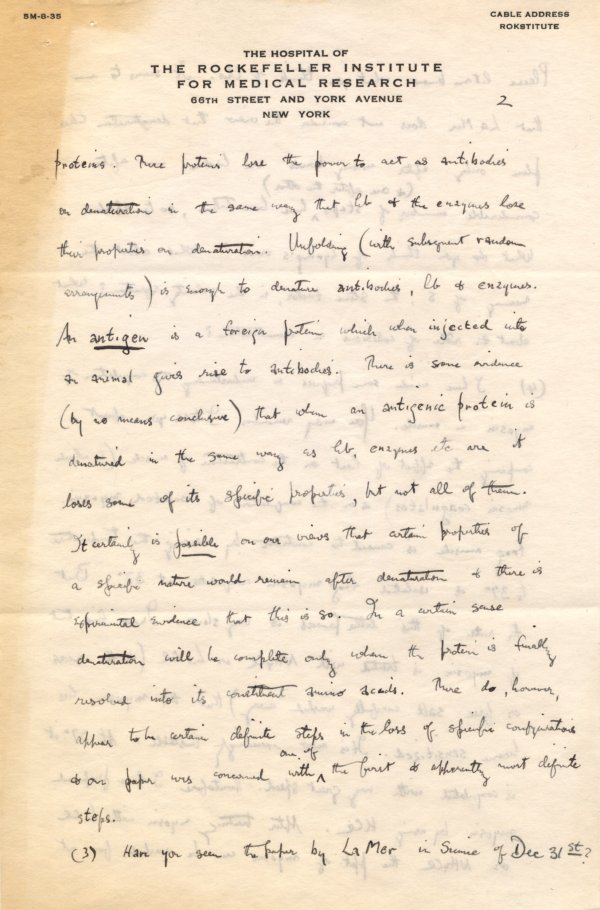 5M-8-35
CABLE ADDRESS
ROKSTITUTE
THE HOSPITAL OF
THE ROCKEFELLER INSTITUTE
FOR MEDICAL RESEARCH
66TH STREET AND YORK AVENUE
NEW YORK
2
proteins. These proteins lose the power to act as antibodies
on denaturation in the same way that Hb & the enzymes lose
their properties on denaturation. Unfolding (with subsequent random
arrangements) is enough to denature antibodies, Hb & enzymes.
An antigen is a foreign protein which when injected into
an animal gives rise to antibodies. There is some evidence
(by no means conclusive) that when an antigenic protein is
denatured in the same way as Hb, enzymes etc are it
loses some of its specific properties, but not all of them.
It certainly is possible on our views that certain properties of
a specific nature would remain after denaturation & there is
experimental evidence that this is so. In a certain sense
denaturation will be complete only when the protein is finally
resolved into its constituent amino acids. There do, however,
appear to be certain definite steps in the loss of specific configurations
& our paper was concerned with one of the first & apparently most definite
steps.
(3) Have you seen the paper by La Mer in Science of Dec 31st?